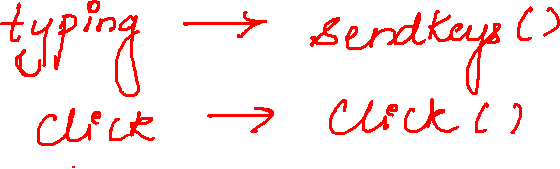 typing → sendkeys()
click → click()